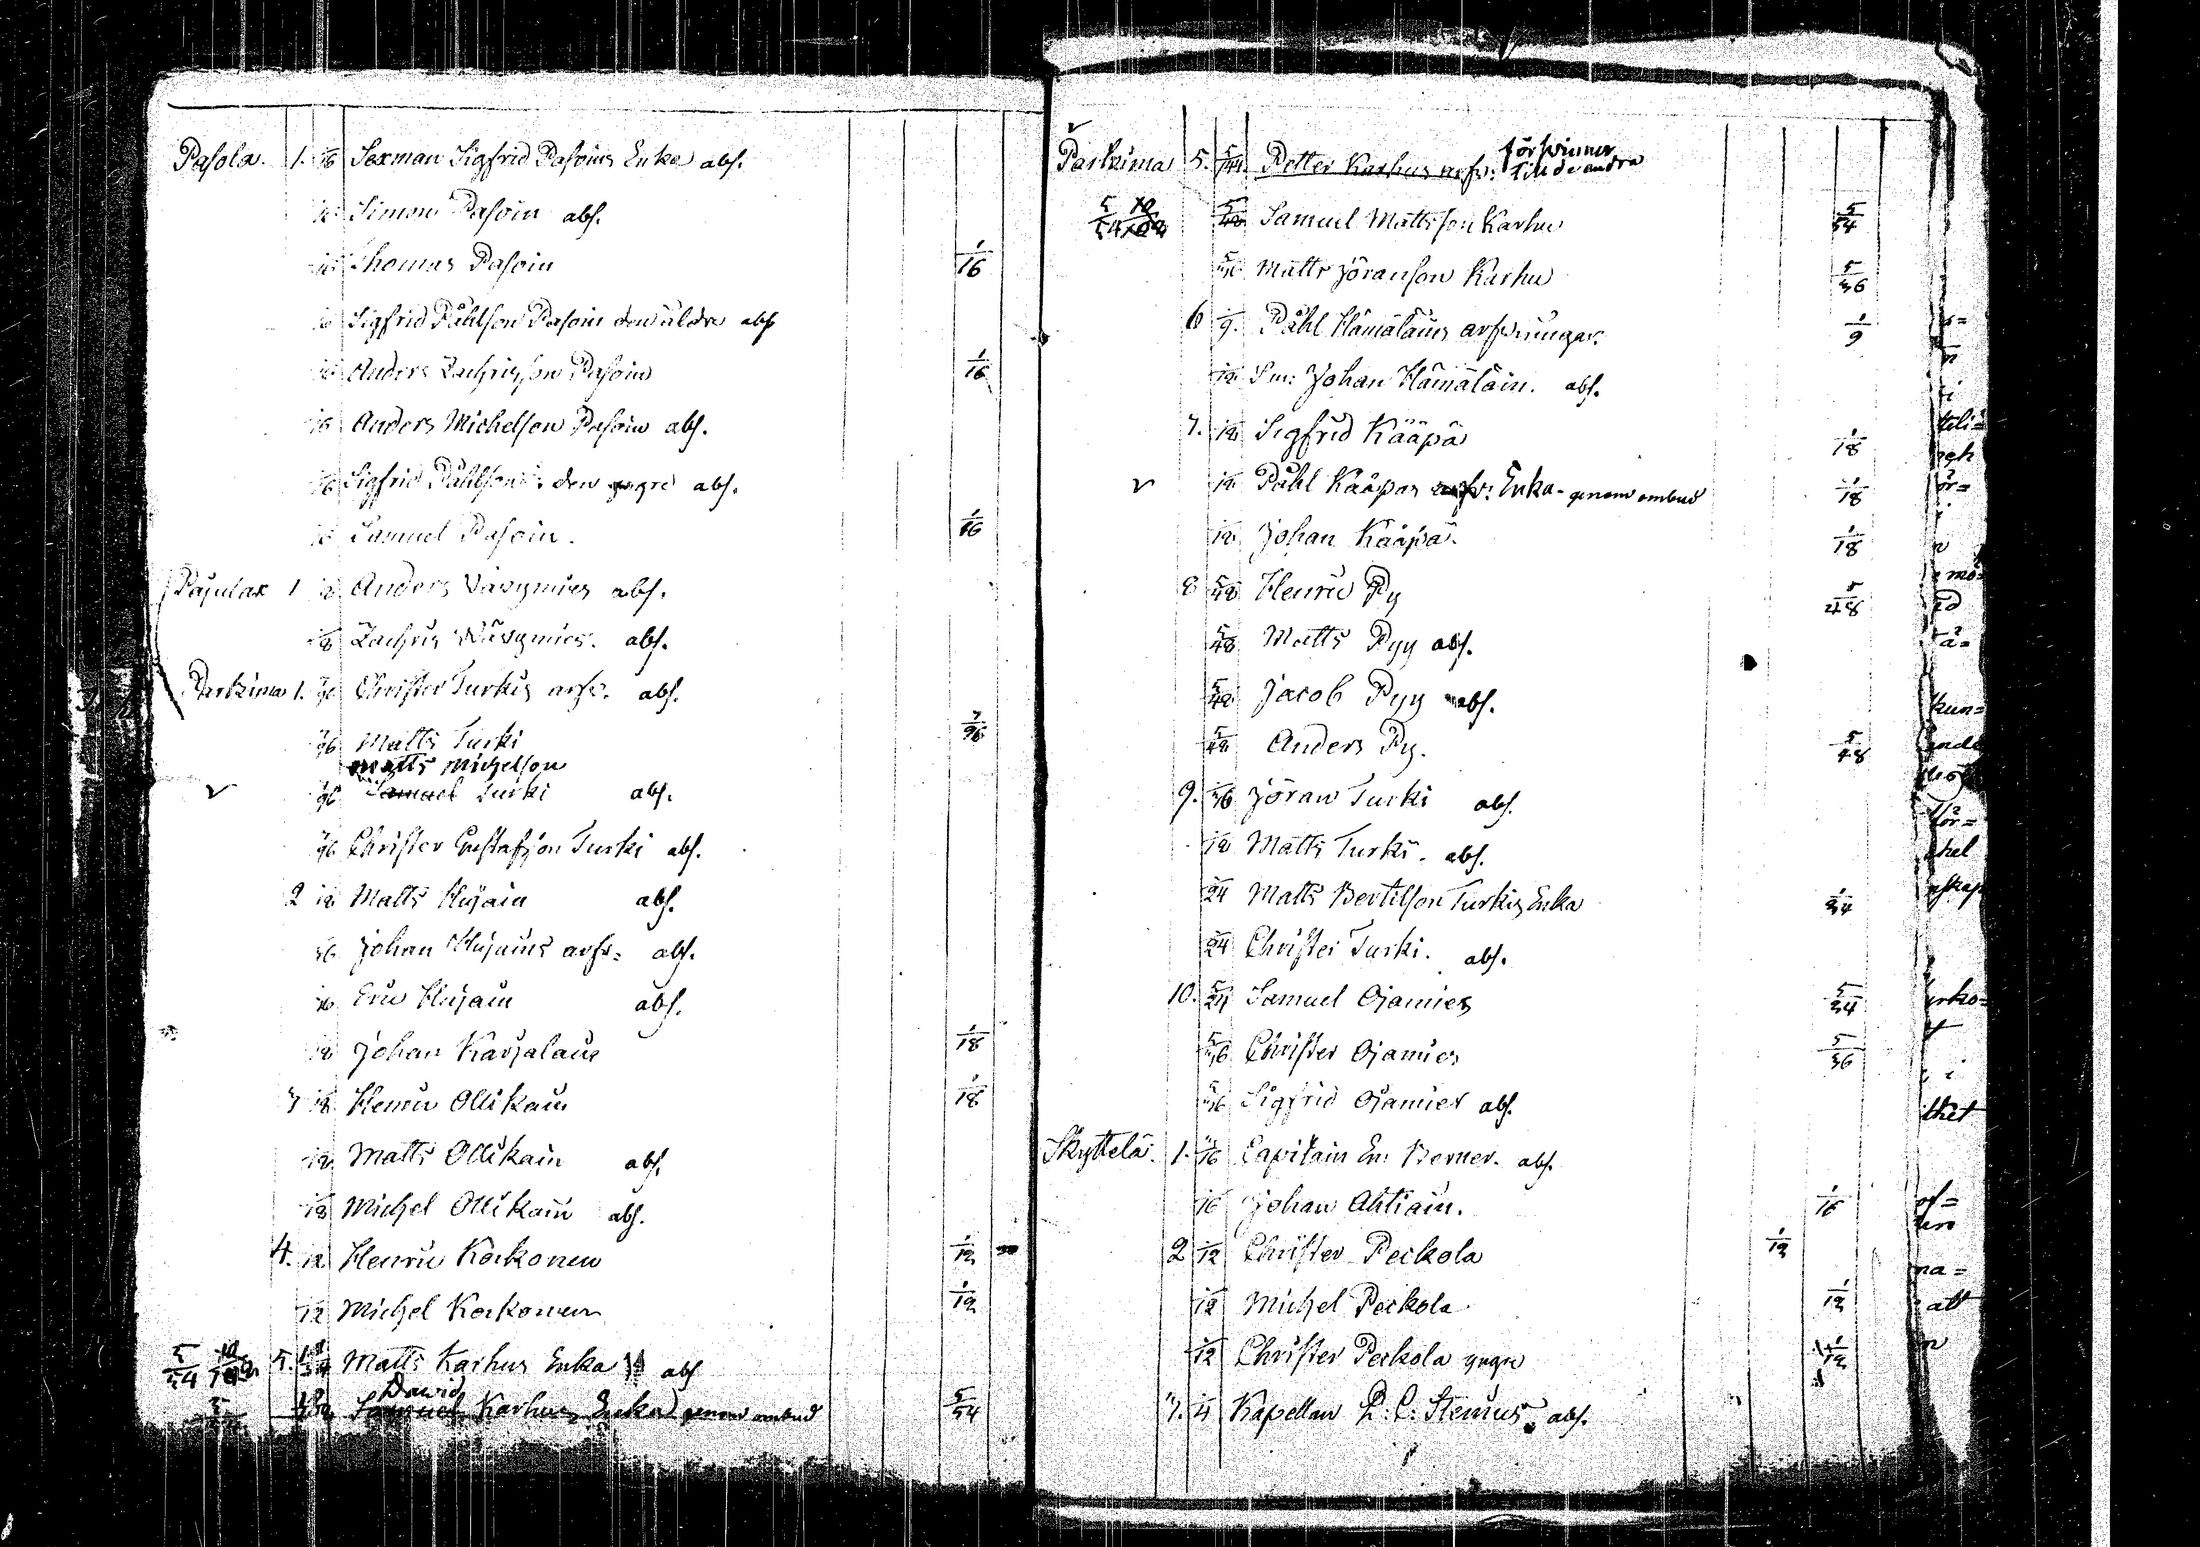 Pasola. 1. 1/16 Sexman Sigfrid Pasoins Enka abs.
1/16 Simon Pasoin abs.
1/16 Thomas Pasoin 1/16
1/16 Sigfrid Påhlson Pasoin den äldre abs
1/16 Anders Zachrisson Pasoin 1/16
1/16 Anders Michelson Pasoin abs.
1/16 Sigfrid Påhlson den yngre abs.
1/16 Samuel Pasoin. 1/16
Pajulax 1 1/8 Anders Väsymies abs.
1/8 Zachris Wäsymies. abs.
Parkima 1. Christer Turkis arfv. abs.
7/96 Matts Turki 7/96
Matts Michelson
7/96 Samuel Turki abs.
7/96 Christer Gustafson Turki abs.
2 1/18 Matts Hujain abs.
1/36 Johan Hujains arfv: abs.
1/36 Eric Hujain abs.
1/18 Johan Karjalain 1/18
3 1/18 Henric Ollikain 1/18
1/18 Matts Ollikain abs.
1/18 Michel Ollikain abs.
4. 1/12 Henric Korkonen 1/12
1/12 Michel Korkonen 1/12
5/54 5. Matts Karhus Enka abs
Dawid
Samuel Karhus Enka genom ombud 5/54
Parkima 5. 5/144 Petter Karhus arfv: försvinner
till de andra
5/54 Samuel Mattsson Karhu 5/54
Matts Jöranson Karhu 5/36
6 1/9. Påhl Hämäläins arfvingar. 1/9
1/18 Sm: Johan Hämäläin. abs.
7. 1/18 Sigfrid Kääpä 1/18
1/18 Påhl Kääpas arfv: Enka - genom ombud 1/18
1/18 Johan Kääpä. 1/18
8 5/48 Henric Py 5/48
5/48 Matts Pyy abs.
5/48 Jacob Pyy abs.
5/48 Anders Py. 5/48
9. 1/36 Jöran Turki abs.
1/18 Matts Turki. abs.
1/24 Matts Bertilson Turkis Enka 1/24
1/24 Christer Turki. abs.
10. 5/24 Samuel Ojamies 5/24
5/36 Christer Ojamies 5/36
5/36 Sigfrid Ojamies abs.
Skyttelä. 1. Capitain Em Berner. abs.
1/16 Johan Ahtiain. 1/16
2 1/12 Christer Peckola 1/12
1/12 Michel Peckola 1/12
1/12 Christer Peckola yngre 1/12
3. 1/4 Kapellan P: C: Stenius. abs.